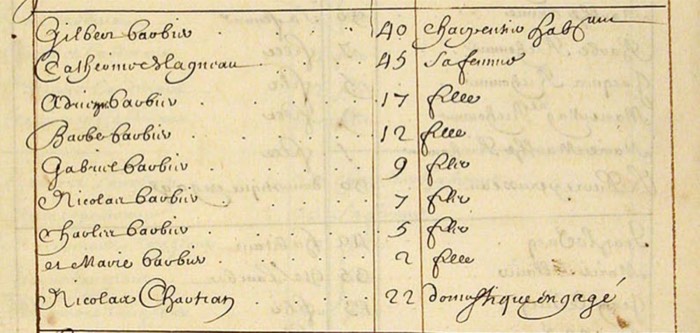 Gilbert barbier . . . . . 40 charpentier hab^tant
Catherine de lagneau . . . . 45 sa femme
Adriane barbier . . . . . 17 fille
Barbe barbier . . . . . 12 fille
Gabriel barbier . . . . . 9 filz
Nicolas barbier . . . . . 7 filz
Charles barbier . . . . . 5 filz
et Marie barbier . . . . . 2 fille
Nicolas Chartran . . . . 22 domestique engagé